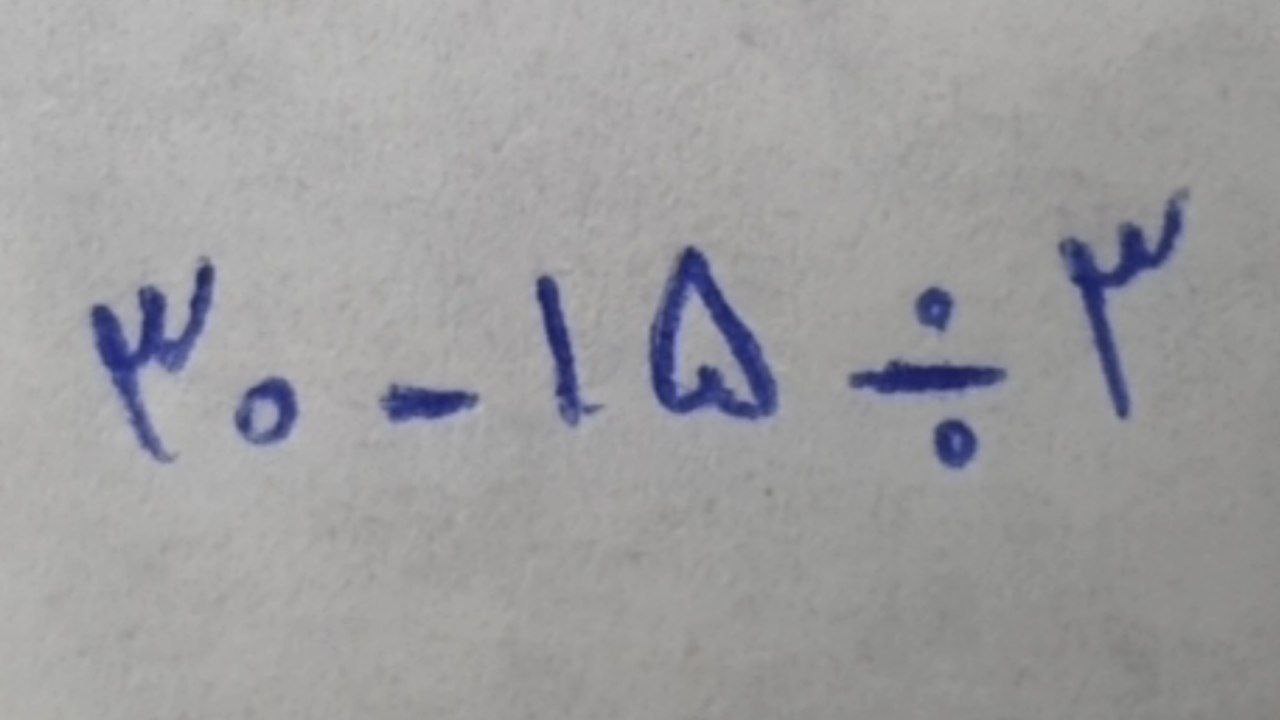 ۳۰ - ۱۵ ÷ ۳